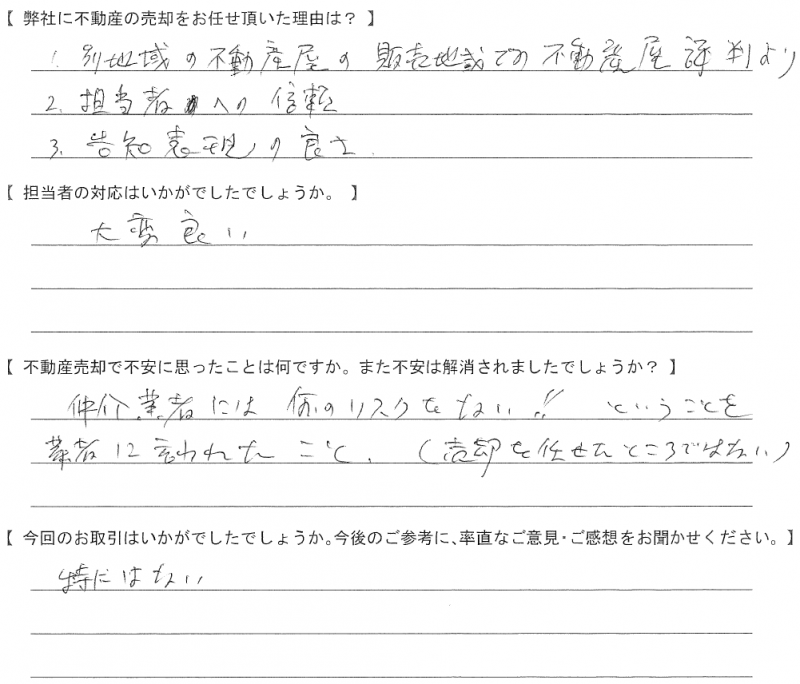 【 弊社に不動産の売却をお任せ頂いた理由は？ 】
1. 別地域の不動産屋の販売地域での不動産屋評判より
2. 担当者への信頼
3. 告知表現の良さ.
【 担当者の対応はいかがでしたでしょうか。 】
大変良い
【 不動産売却で不安に思ったことは何ですか。また不安は解消されましたでしょうか？ 】
仲介業者には何のリスクもない!! ということを
業者に言われたこと. (売却を任せたところではない)
【 今回のお取引はいかがでしたでしょうか。今後のご参考に、率直なご意見・ご感想をお聞かせください。 】
特にはない